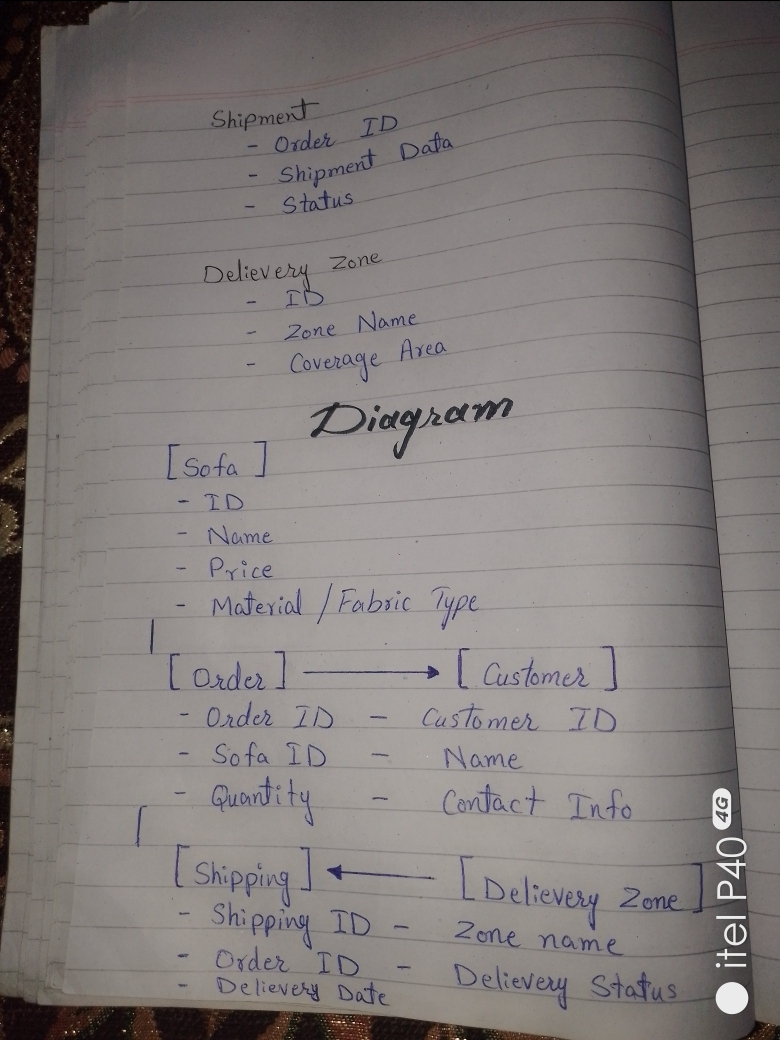 Shipment
- Order ID
- Shipment Data
- Status
Delievery Zone
- ID
- Zone Name
- Coverage Area
Diagram
[Sofa]
- ID
- Name
- Price
- Material / Fabric Type
[Order] → [Customer]
- Order ID - Customer ID
- Sofa ID - Name
- Quantity - Contact Info
[Shipping] ← [Delievery Zone]
- Shipping ID - Zone name
- Order ID - Delievery Status
- Delievery Date
itel P40 4G